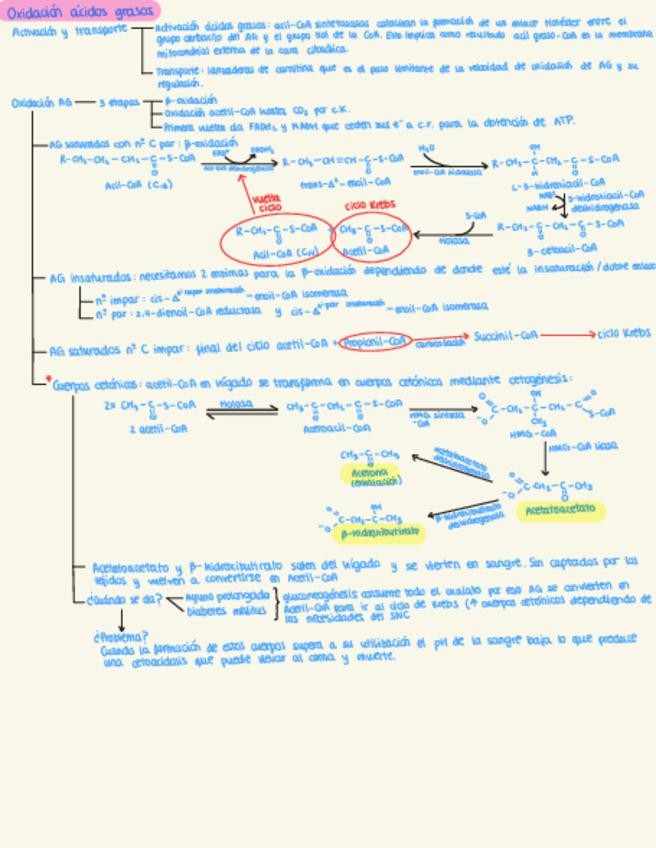 Oxidación ácidos grasos
Activación y transporte
Activación ácidos grasos: acil-CoA sintetasas catalizan la formación de un enlace tioéster entre el
grupo carboxilo del AG y el grupo tiol de la CoA. Esto implica como resultado acil graso-CoA en la membrana
mitocondrial externa de la cara citosólica.
Transporte: lanzaderas de carnitina que es el paso limitante de la velocidad de oxidación de AG y su
regulación.
Oxidación AG — 3 etapas
β-oxidación
Oxidación acetil-CoA hasta CO₂ por c.k.
Primera vuelta da FADH₂ y NADH que ceden sus e⁻ a c.r. para la obtención de ATP.
AG saturados con nº C par: β-oxidación
R-CH₂-CH₂-CH₂-C-S-CoA
O
Acil-CoA
FADH₂
R-CH₂-CH=CH-C-S-CoA
O
trans-Δ²-enoil-CoA
H₂O
enoil-CoA hidratasa
OH
R-CH₂-C-CH₂-C-S-CoA
H O
L-3-hidroxiacil-CoA
NADH
3-hidroxiacil-CoA
deshidrogenasa
vuelta
ciclo
ciclo Krebs
R-CH₂-C-S-CoA
O
Acil-CoA
CH₃-C-S-CoA
O
Acetil-CoA
S-CoA
tiolasa
R-CH₂-C-CH₂-C-S-CoA
O O
3-cetoacil-CoA
AG insaturados: necesitamos 2 enzimas para la β-oxidación dependiendo de donde esté la insaturación/doble enlace
nº impar: cis-Δ - enoil-CoA isomerasa
nº par: 2,4-dienoil-CoA reductasa y cis-Δ - enoil-CoA isomerasa
AG saturados nº C impar: final del ciclo acetil-CoA + Propionil-CoA
carboxilación
Succinil-CoA
ciclo Krebs
* Cuerpos cetónicos: acetil-CoA en hígado se transforma en cuerpos cetónicos mediante cetogénesis:
2x CH₃-C-S-CoA
O
2 acetil-CoA
tiolasa
CH₃-C-CH₂-C-S-CoA
O O
Acetoacil-CoA
HMG sintasa
-CoA
OH
C-CH₂-C-CH₂-C
CH₃
S-CoA
HMG-CoA
HMG-CoA liasa
C-CH₂-C-CH₃
O
Acetatoacetato
Acetatoacetato
CH₃-C-CH₃
O
Acetona
(exhalación)
β-hidroxibutirato
deshidrogenasa
OH
C-CH₂-C-CH₃
β-hidroxibutirato
Acetatoacetato y β-hidroxibutirato salen del hígado y se vierten en sangre. Son captados por los
tejidos y vuelven a convertirse en Acetil-CoA
¿Cuándo se da?
Ayuno prolongado
Diabetes mellitus
gluconeogénesis consume todo el oxalato por eso AG se convierten en
Acetil-CoA para ir al ciclo de Krebs (↑ cuerpos cetónicos dependiendo de
las necesidades del SNC
¿Problema?
Cuando la formación de estos cuerpos supera a su utilización el pH de la sangre baja, lo que produce
una cetoacidosis que puede llevar al coma y muerte.